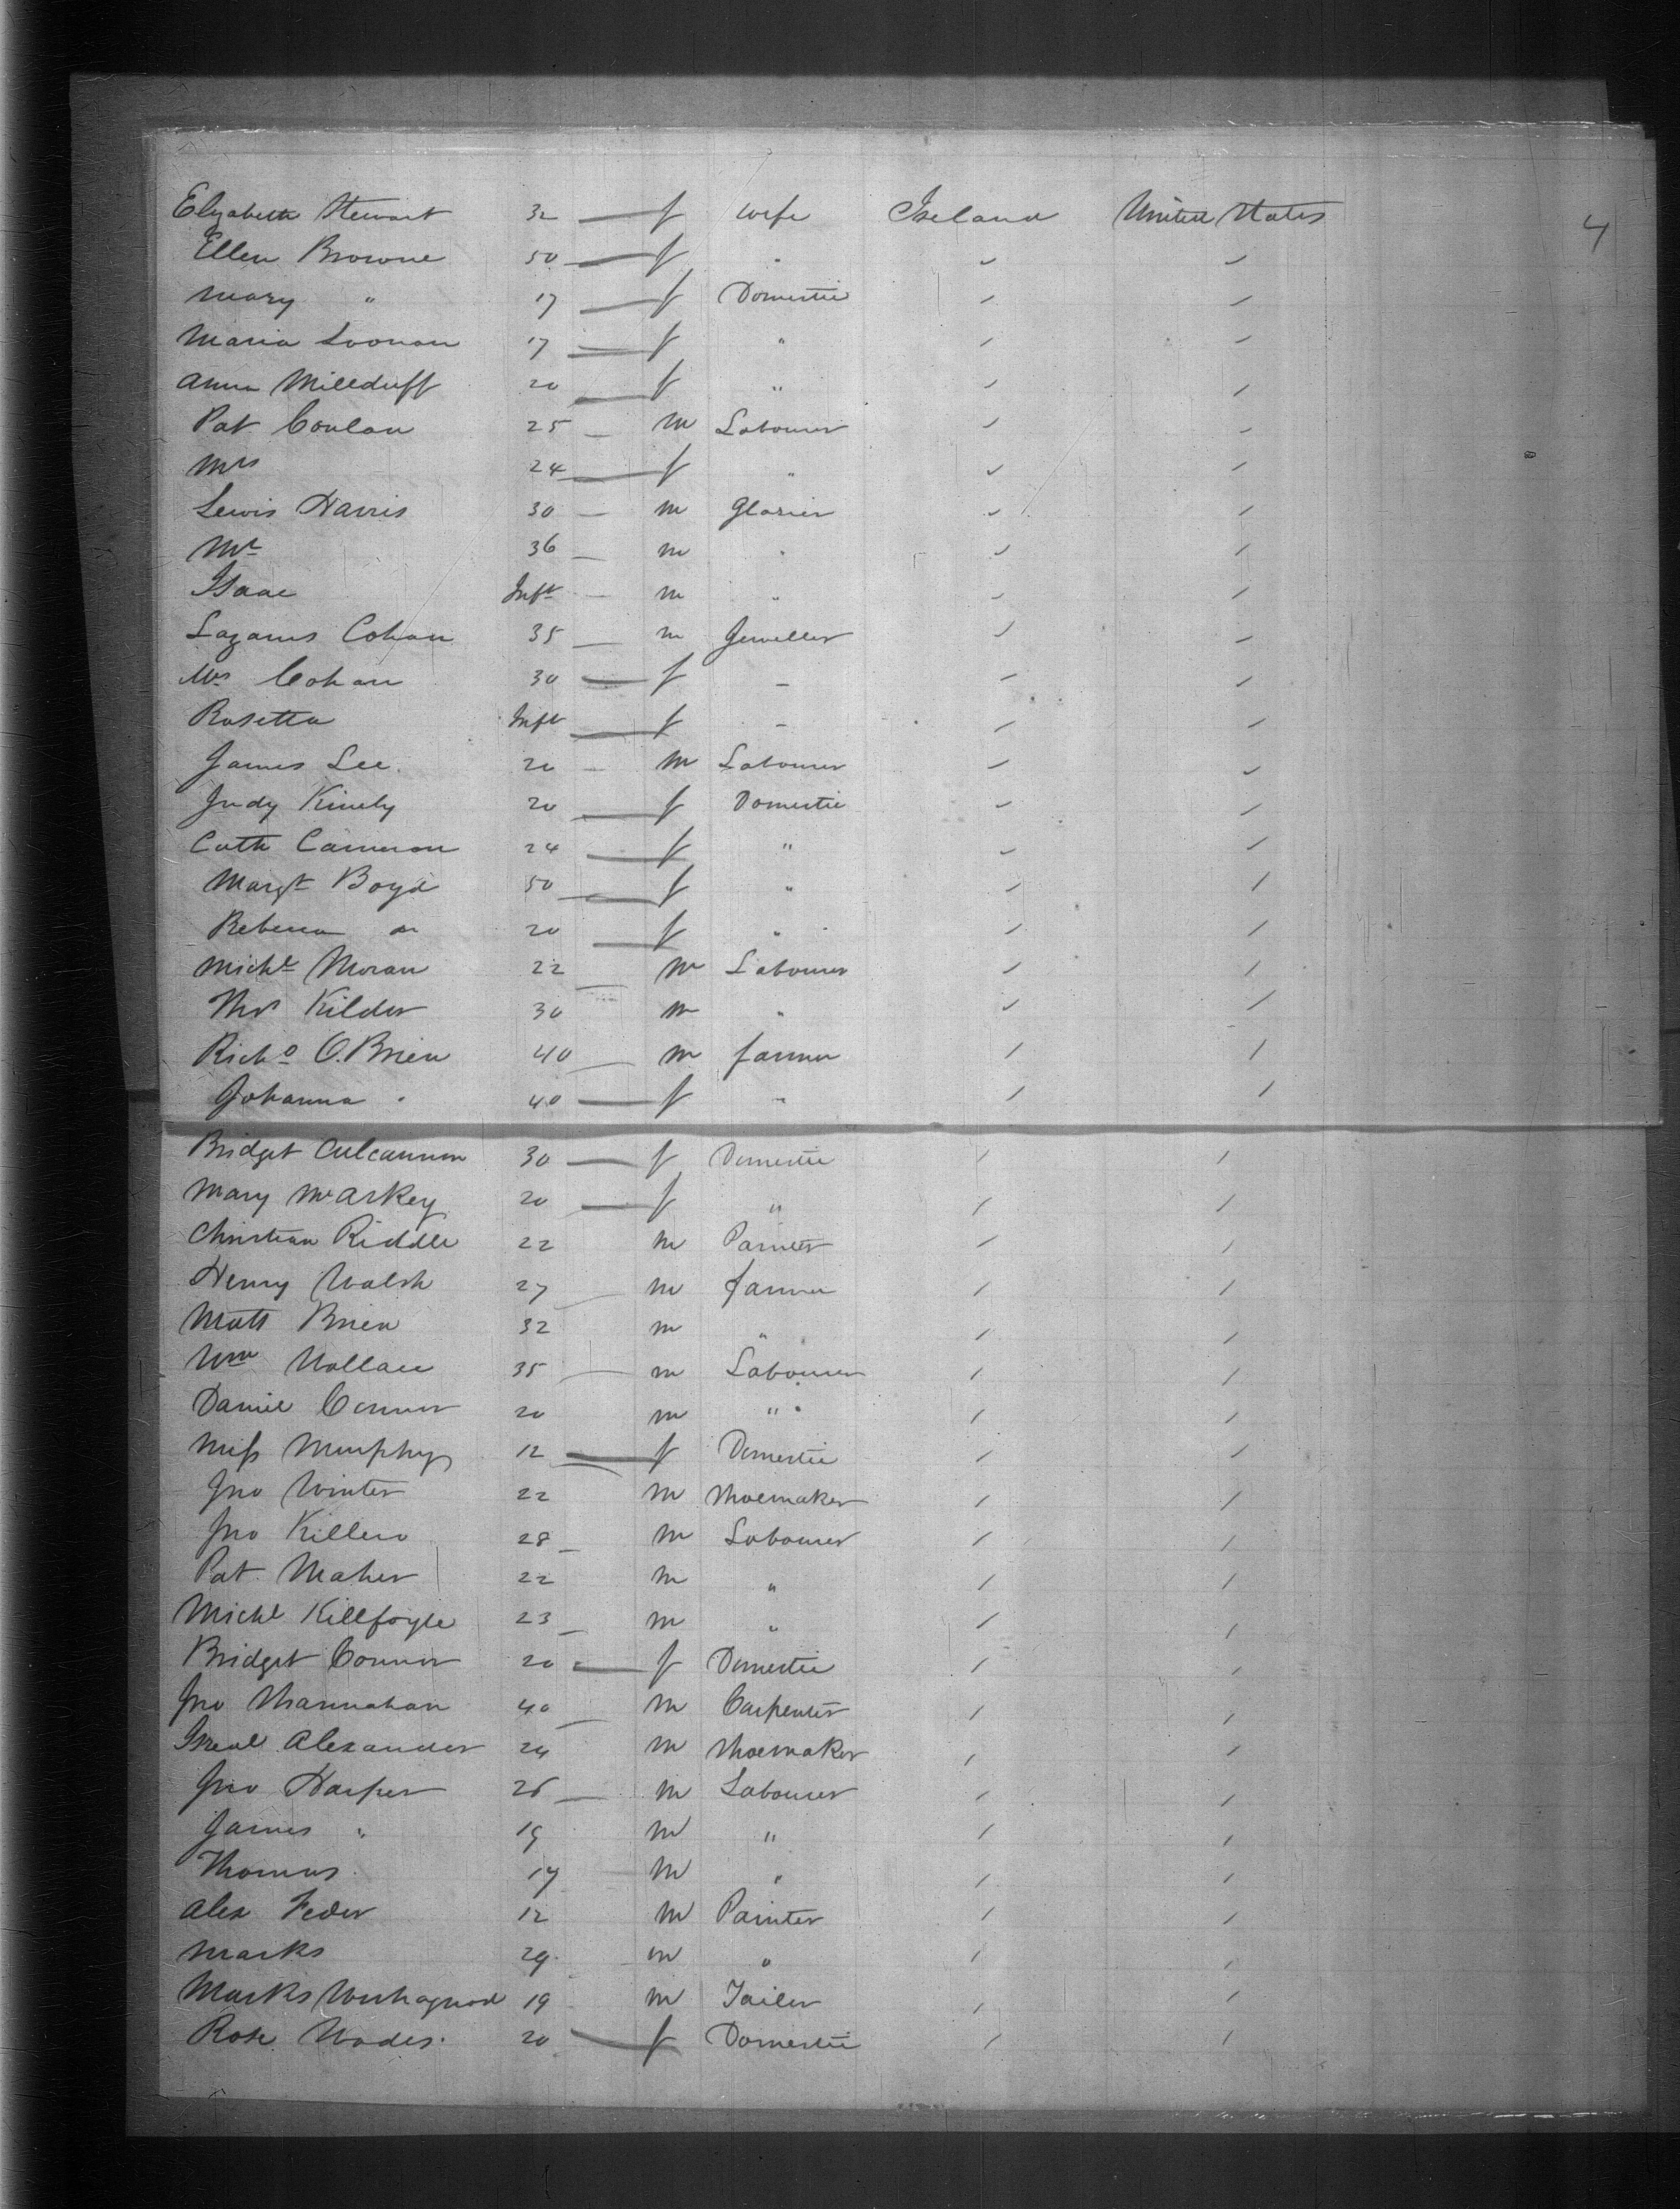 4
Elizabeth Stewart 32 f wife Ireland United States
Ellen Browne 50 f "
Mary " 17 f Domestic
Maria Loonan 17 f "
Anna Millduff 20 f "
Pat Conlan 25 m Labourer
Mrs 24 f "
Lewis Harris 30 m Glazier
Mr 36 m "
Isaac Inft m "
Lazarus Cohan 35 m Jeweller
Mrs Cohan 30 f –
Rosetta Inft f –
James Lee 20 m Labourer
Judy Kinely 20 f Domestic
Cath Cameron 24 f "
Margt Boyd 50 f "
Rebecca do 20 f "
Michl Moran 22 m Labourer
Thos Kilder 30 m "
Richd O.Brien 40 m farmer
Johanna " 40 f "
Bridget Culcannon 30 f Domestic
Mary McArkey 20 f "
Christian Riddle 22 m Painter
Henry Walsh 27 m farmer
Matt Brien 32 m "
Wm Wallace 35 m Labourer
Daniel Connor 20 m "
Miss Murphy 12 f Domestic
Jno Winter 22 m Shoemaker
Jno Killen 28 m Labourer
Pat Maher 22 m "
Michl Killfoyle 23 m "
Bridget Connor 20 f Domestic
Jno Shannahan 40 m Carpenter
Isreal Alexander 24 m Shoemaker
Jno Harper 26 m Labourer
James " 19 m "
Thomas 17 m "
Alex Feder 12 m Painter
Marks 29 m "
Marks 19 m Tailer
Rose Wades 20 f Domestic